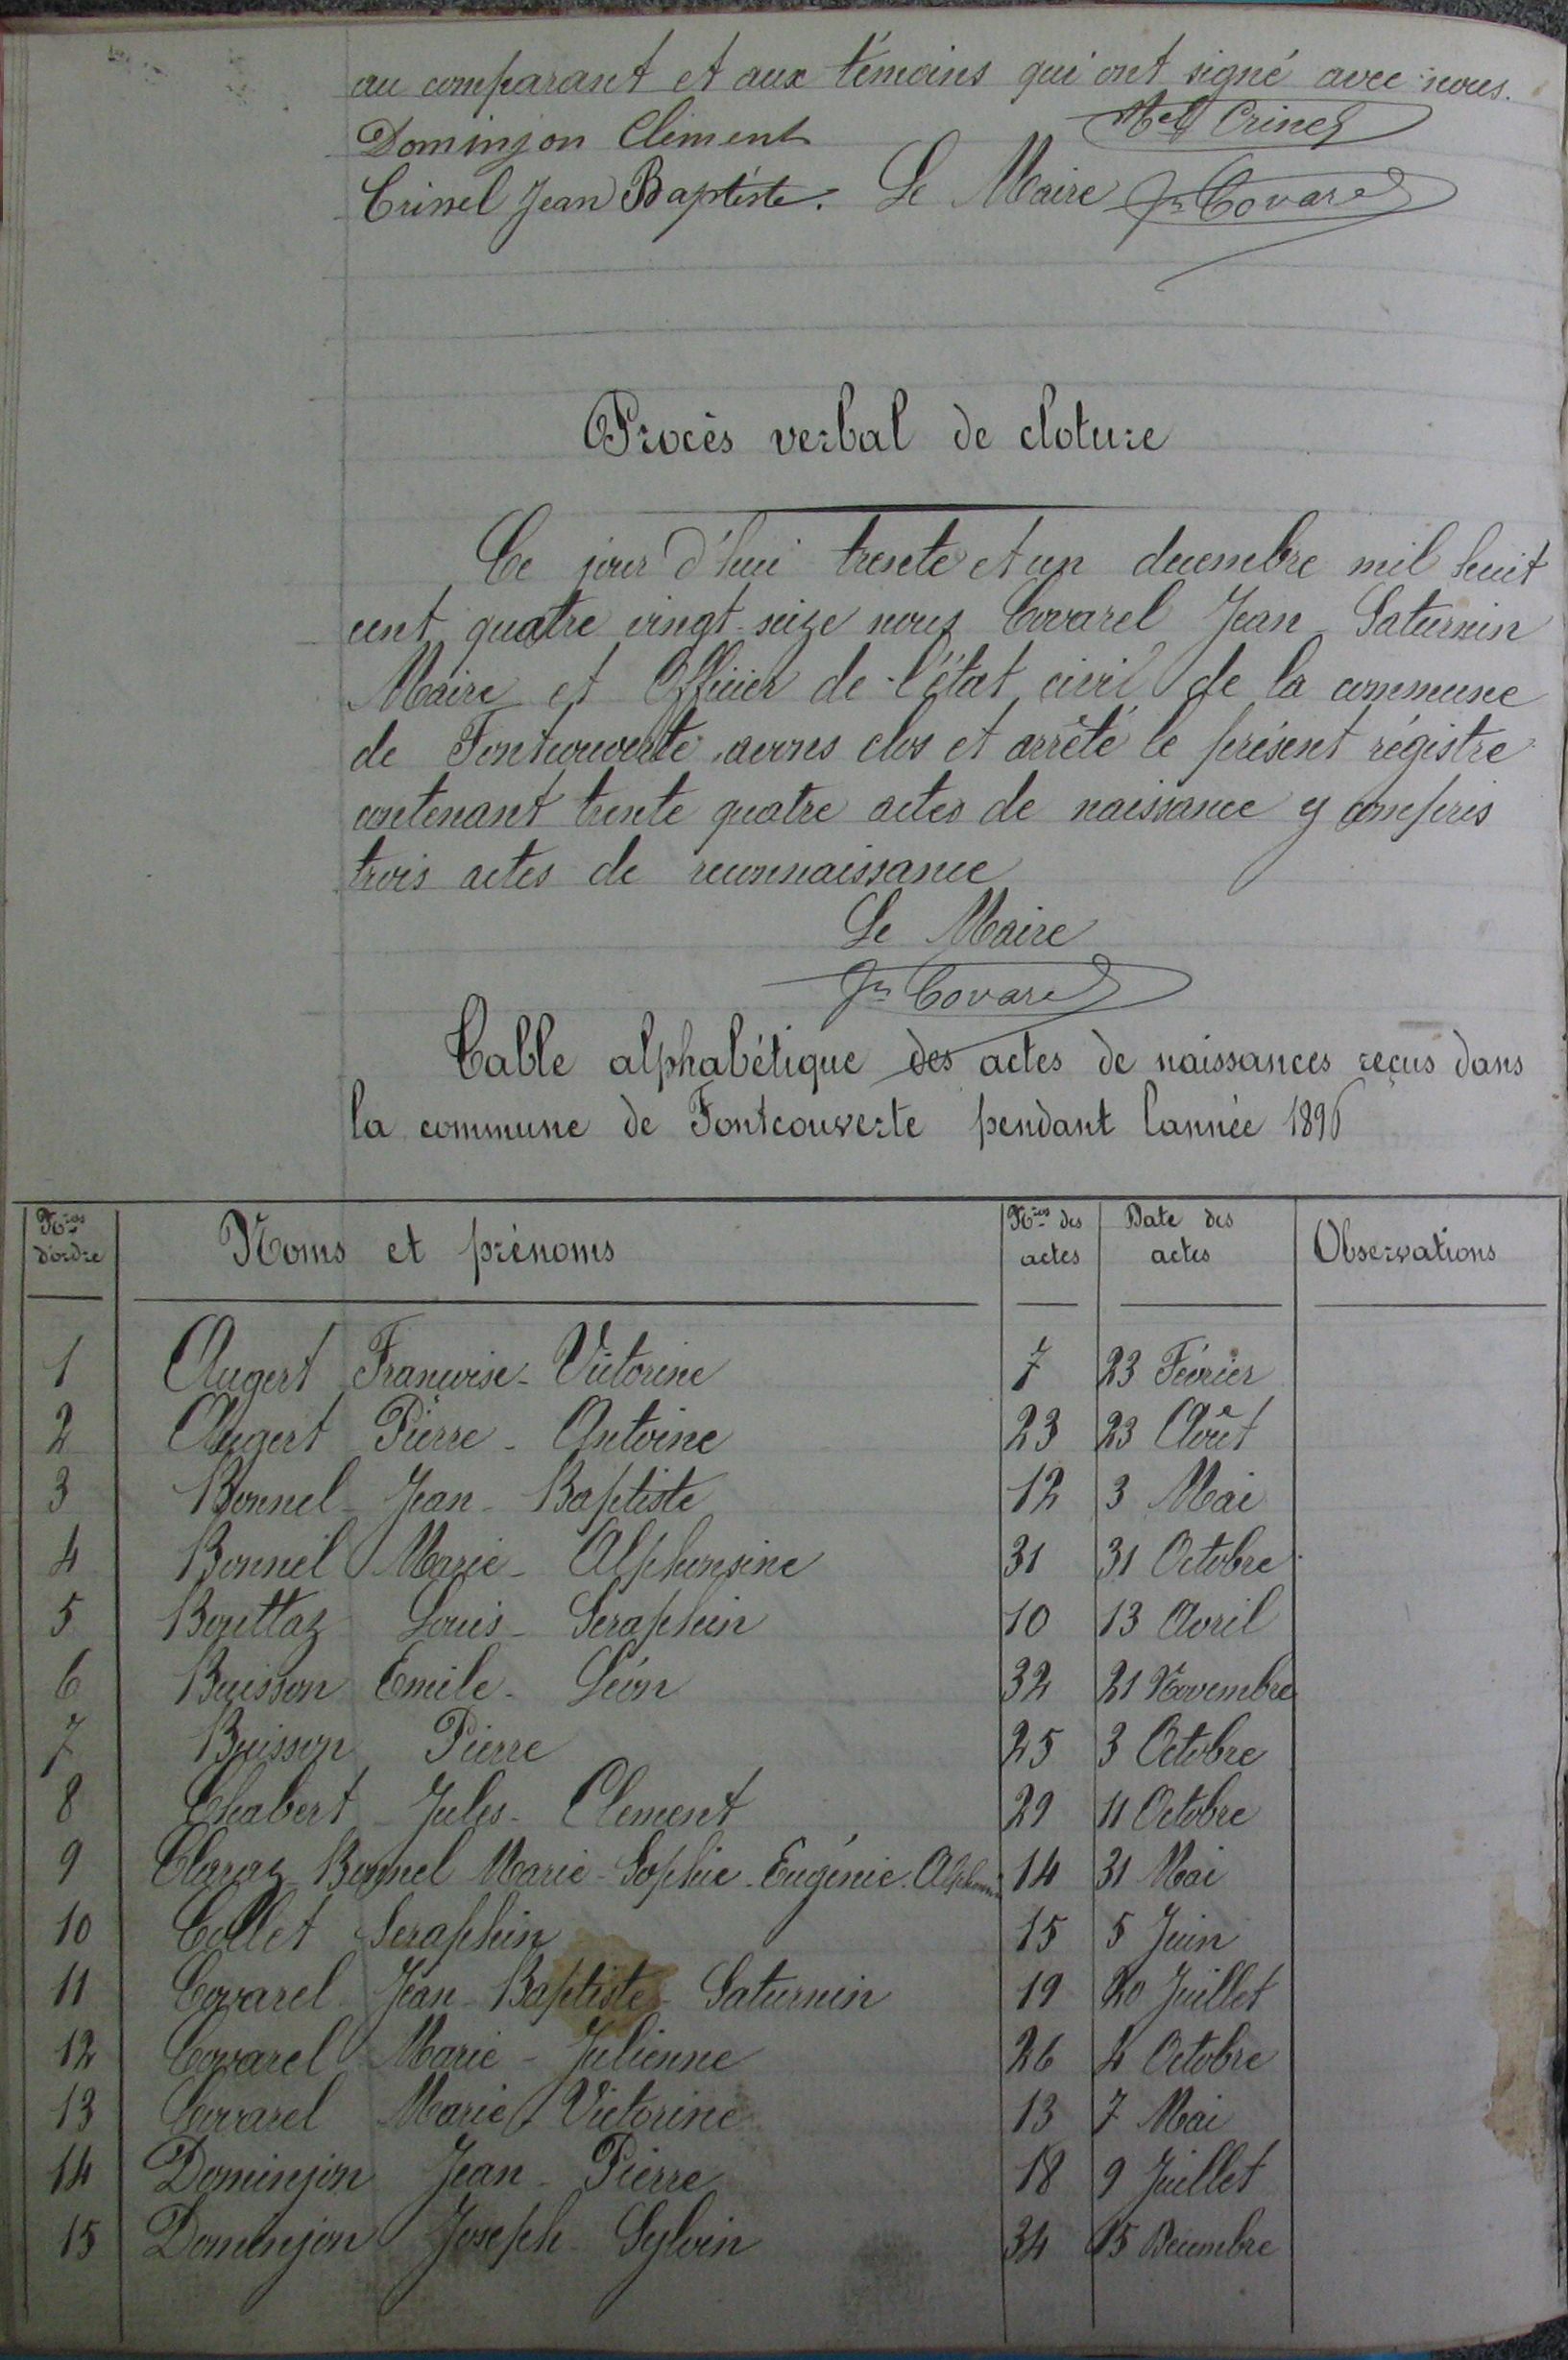 au comparant et aux témoins qui ont signé avec nous.
Dominjon Clément
Crinel Jean Baptiste. Le Maire Jn Covarel
Procès verbal de cloture
Ce jour d'hui trente et un decembre mil huit
cent quatre vingt-seize nous Covarel Jean Saturnin
Maire et Officier de l'état civil de la commune
de Fontcouverte avons clos et arrêté le présent régistre
contenant trente quatre actes de naissance y compris
trois actes de reconnaissance
Le Maire
Jn Covarel
Table alphabétique des actes de naissances reçus dans
la commune de Fontcouverte pendant l'année 1896
Nros d'ordre Noms et prénoms Nros des actes Date des actes Observations
1 Augert Françoise-Victorine 7 23 Février
2 Augert Pierre-Antoine 23 23 Août
3 Bonnel Jean-Baptiste 12 3 Mai
4 Bonnel Marie-Alphonsine 31 31 Octobre
5 Bouttaz Louis-Seraphin 10 13 Avril
6 Buisson Emile-Léon 32 21 Novembre
7 Buisson Pierre 25 3 Octobre
8 Chabert Jules-Clement 29 11 Octobre
9 Claraz-Bonnel Marie-Sophie-Eugénie 14 31 Mai
10 Collet Seraphin 15 5 Juin
11 Covarel Jean-Baptiste-Saturnin 19 20 Juillet
12 Covarel Marie-Julienne 26 4 Octobre
13 Covarel Marie Victorine 13 7 Mai
14 Dominjon Jean-Pierre 18 9 Juillet
15 Dominjon Joseph-Sylvin 34 15 Décembre